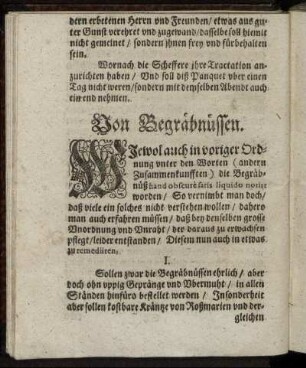 dern erbetenen Herrn und Freunden/ etwas aus gu-
ter Gunst verehret und zugewand/ dasselbe soll hiemit
nicht gemeinet / sondern jhnen frey und fürbehalten
sein.
Wornach die Scheffere jhre Tractation an-
zurichten haben / Und soll diß Panquet vber einen
Tag nicht weren/ sondern mit demselben Abendt auch
ein end nehmen.
Von Begräbnüssen.
WJewol auch in voriger Ord-
nung vnter den Worten (andern
Zusammenkunfften) die Begräb-
nüß haud obscurè satis liquidò notirt
worden / So vernimbt man doch/
daß viele ein solches nicht verstehen wollen / dahero
man auch erfahren müssen / daß bey denselben grosse
Vnordnung vnd Vnraht / der daraus zu erwachsen
pflegt/ leider entstanden / Diesem nun auch in etwas
zu remediiren.
I.
Sollen zwar die Begräbnüssen ehrlich / aber
doch ohn vppig Gepränge und Vbermuht / in allen
Ständen hinfüro bestellet werden / Insonderheit
aber sollen kostbare Kräntze von Roßmarien und der-
gleichen